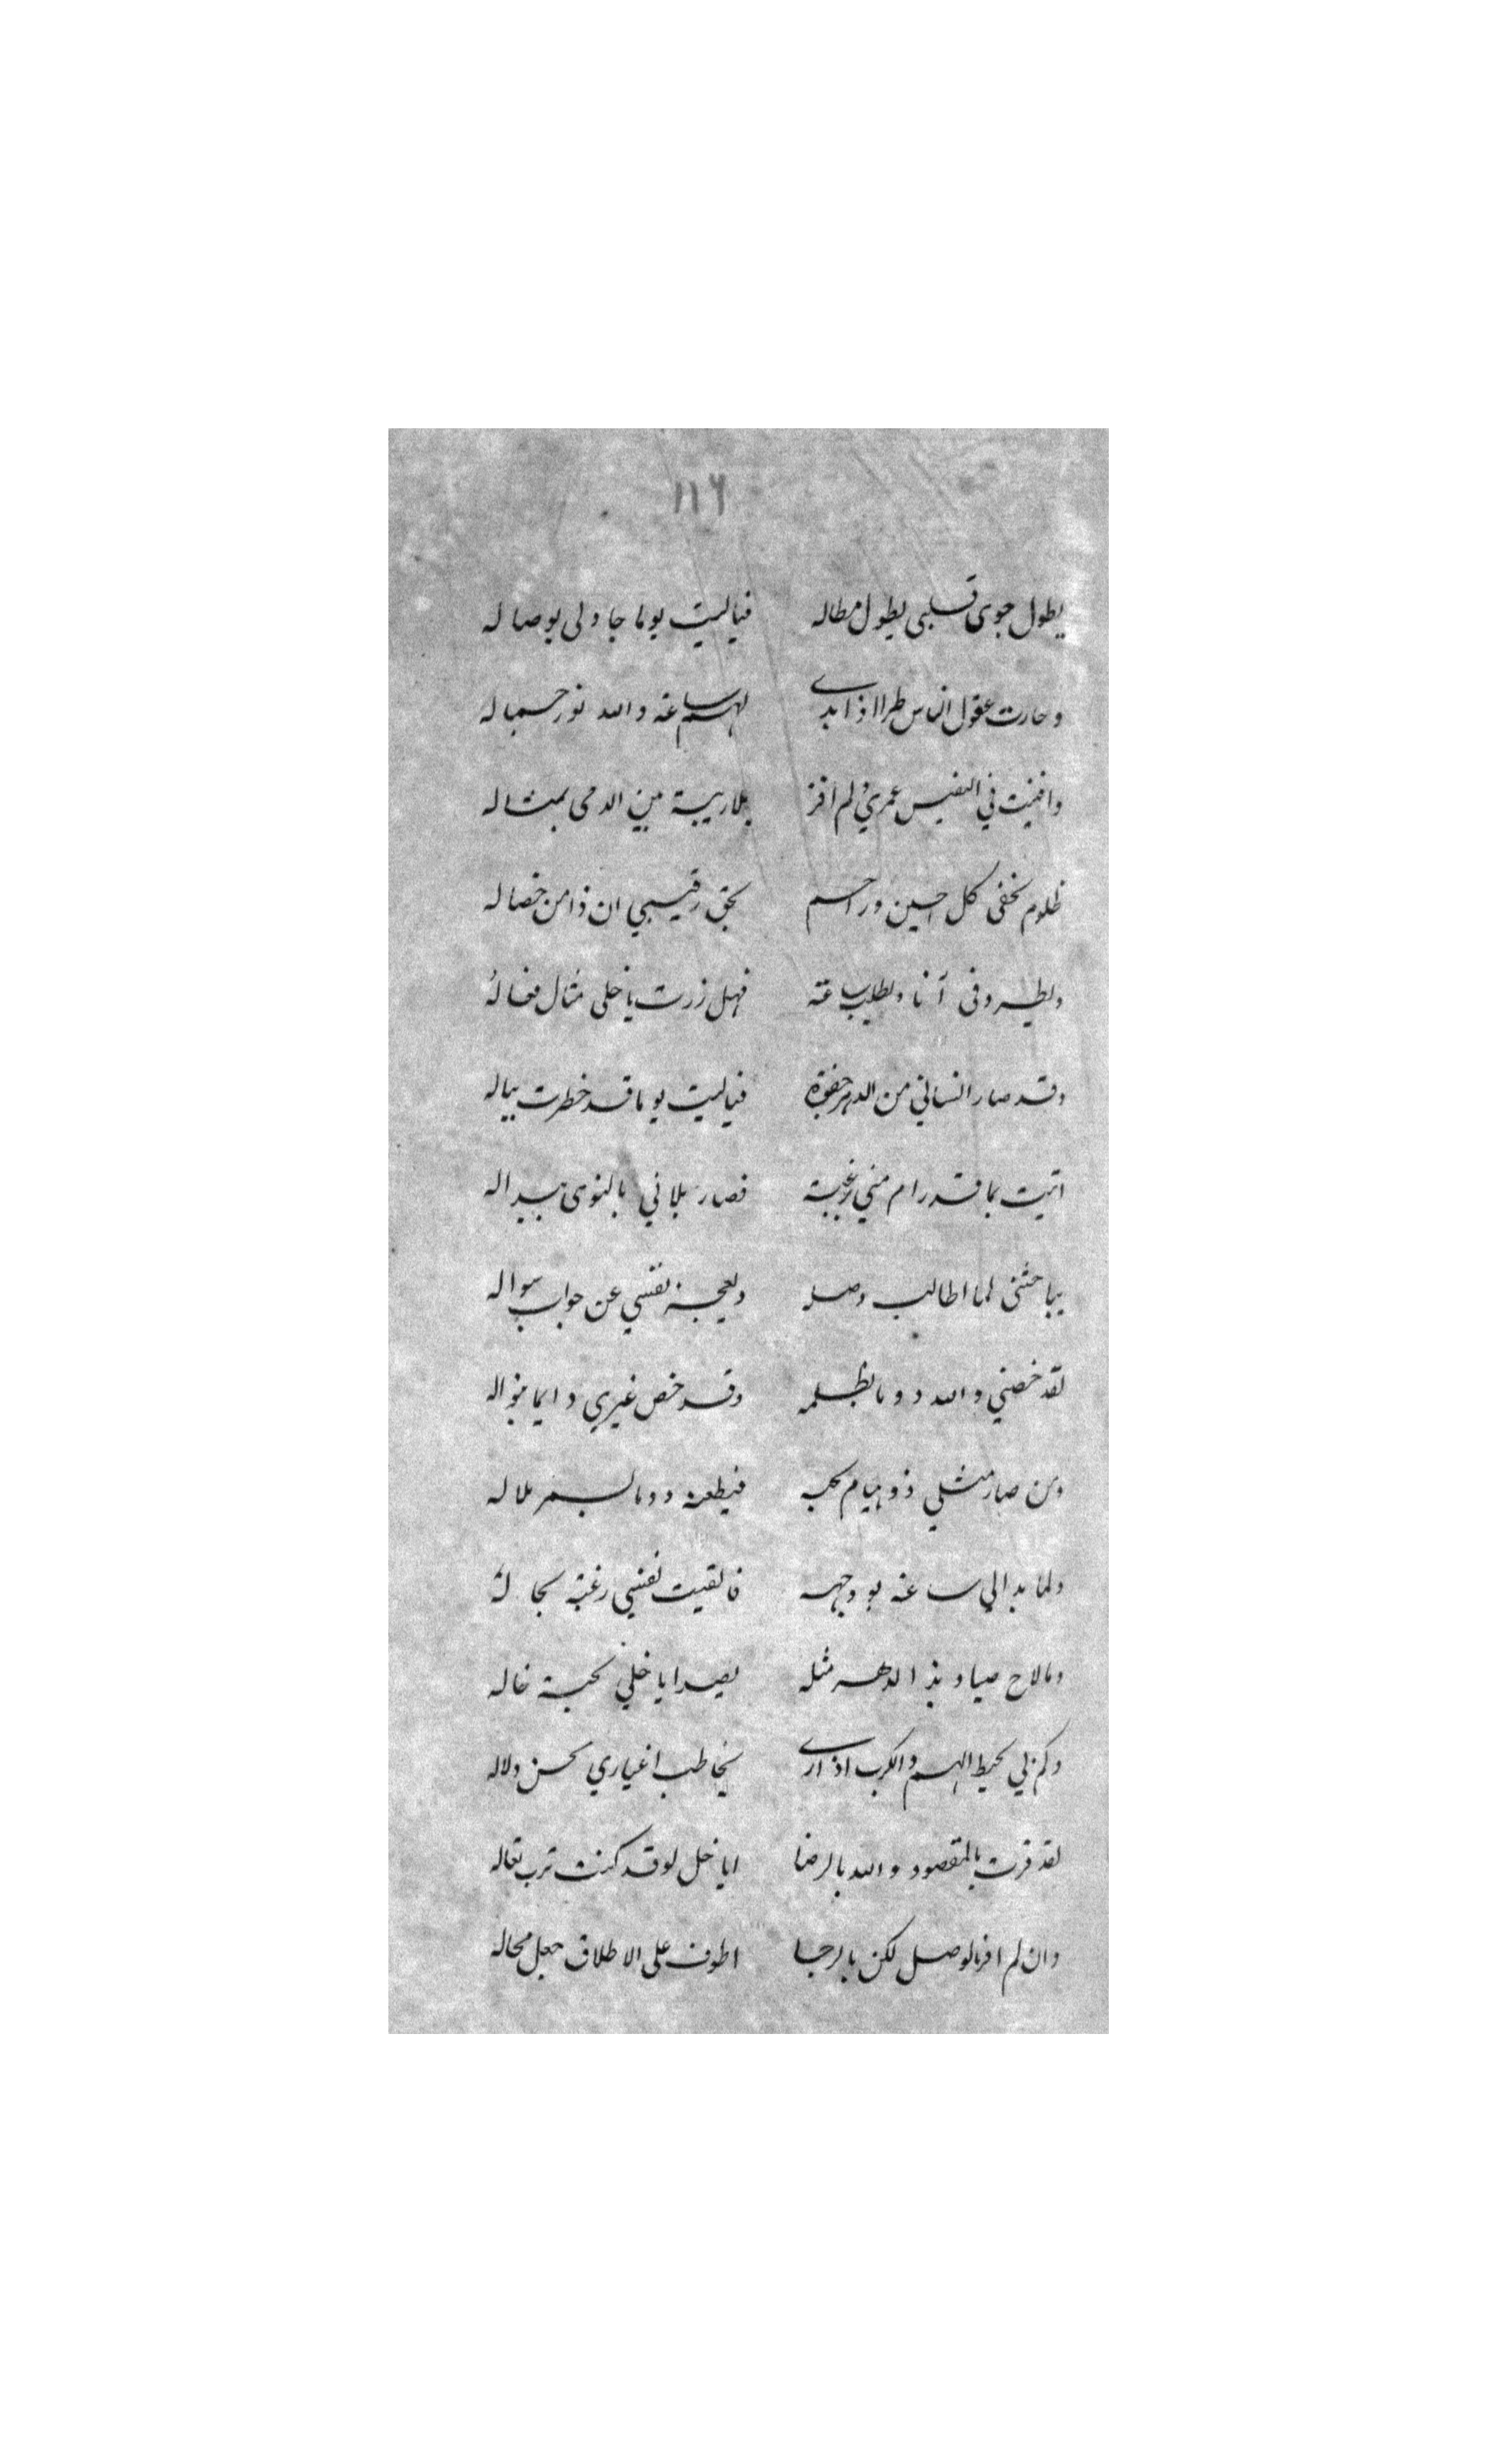 ١١٦
يطول جوى قلبي بطول مطاله فياليت يوما جاد لى بوصاله
وحارت عقول الناس طرا اذا بدى لهم ساعة والله نور جماله
وافنيت في التفتيش عمري ولم افز بلا ريبة بين الدمى بمثاله
ظلوم بخفى كل حين وراحم بحق رقيبي ان ذا من خصاله
ويطرد في آنا ويطلب ساعة فهل زرت يا خلى مثال فعاله
وقد صار انساني من الدهر حفوة فياليت يوما قد خطرت بباله
اتيت بما قد رام مني رغبة فصار بلاني بالنوى بيداله
يباحثنى لما اطالب وصله ويعجز نفسي عن جواب سواله
لقد خصني والله دوما بظلمه وقد خص غيري دايما بنواله
ومن صار مثلي ذو هيام بحبه فيطعنه دوما بسمر ملاله
ولما بدا لي ساعة بو وجهه فالقيت نفسي رغبة بجاله
ومالاح صياد بذا الدهر مثله يصيد ايا خلي بحبة خاله
وكم لي يحيط الهم والكرب اذ ارى يخاطب اغياري بحسن دلاله
لقد فزت بالمقصود والله بالرضا ايا خل لو قد كنت ترب نعاله
وان لم افز بالوصل لكن بالرجا اطوف على الاطلاق حول محاله